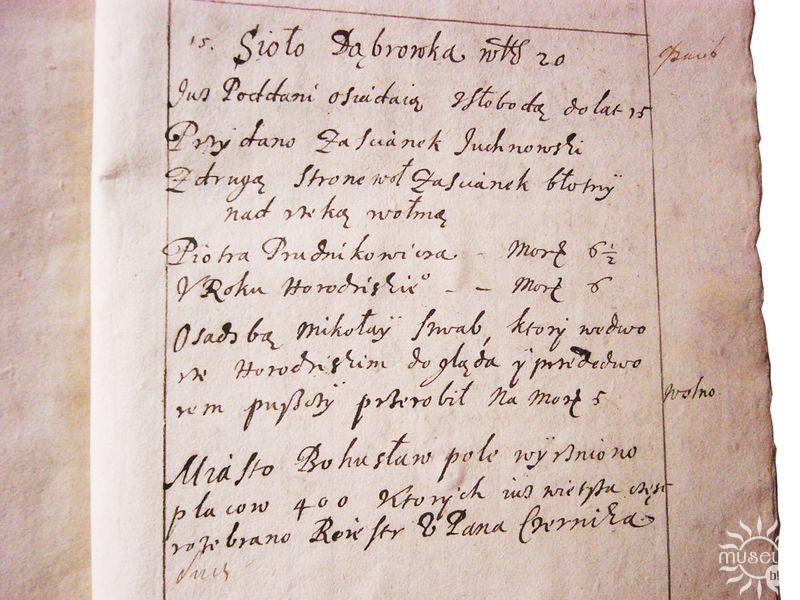 15. Sioło Dąbrowka włok 20
Jus Poddani osiedaią Zsłobodą do lat 15
Przydano Zascianek Juchnowski
Z drugą strone wsł Zascianek błotny
nad rzeką wołmą
Piotra Prudnikowicza - Morg 6 1/2
V Roku Horodziskie° - - Morg 6
Osadzbą Mikołaÿ Szwab, ktorÿ wedwo
rze Horodziskim dogląda ÿ przededwo
rem puszczÿ przerobił Na Morg 5
wolno
Miasto Bohusław pole wÿrzniono
placow 400 Ktorÿch ius wietsza częsc
rozebrano Reiestr V Pana Czernika
museum
by